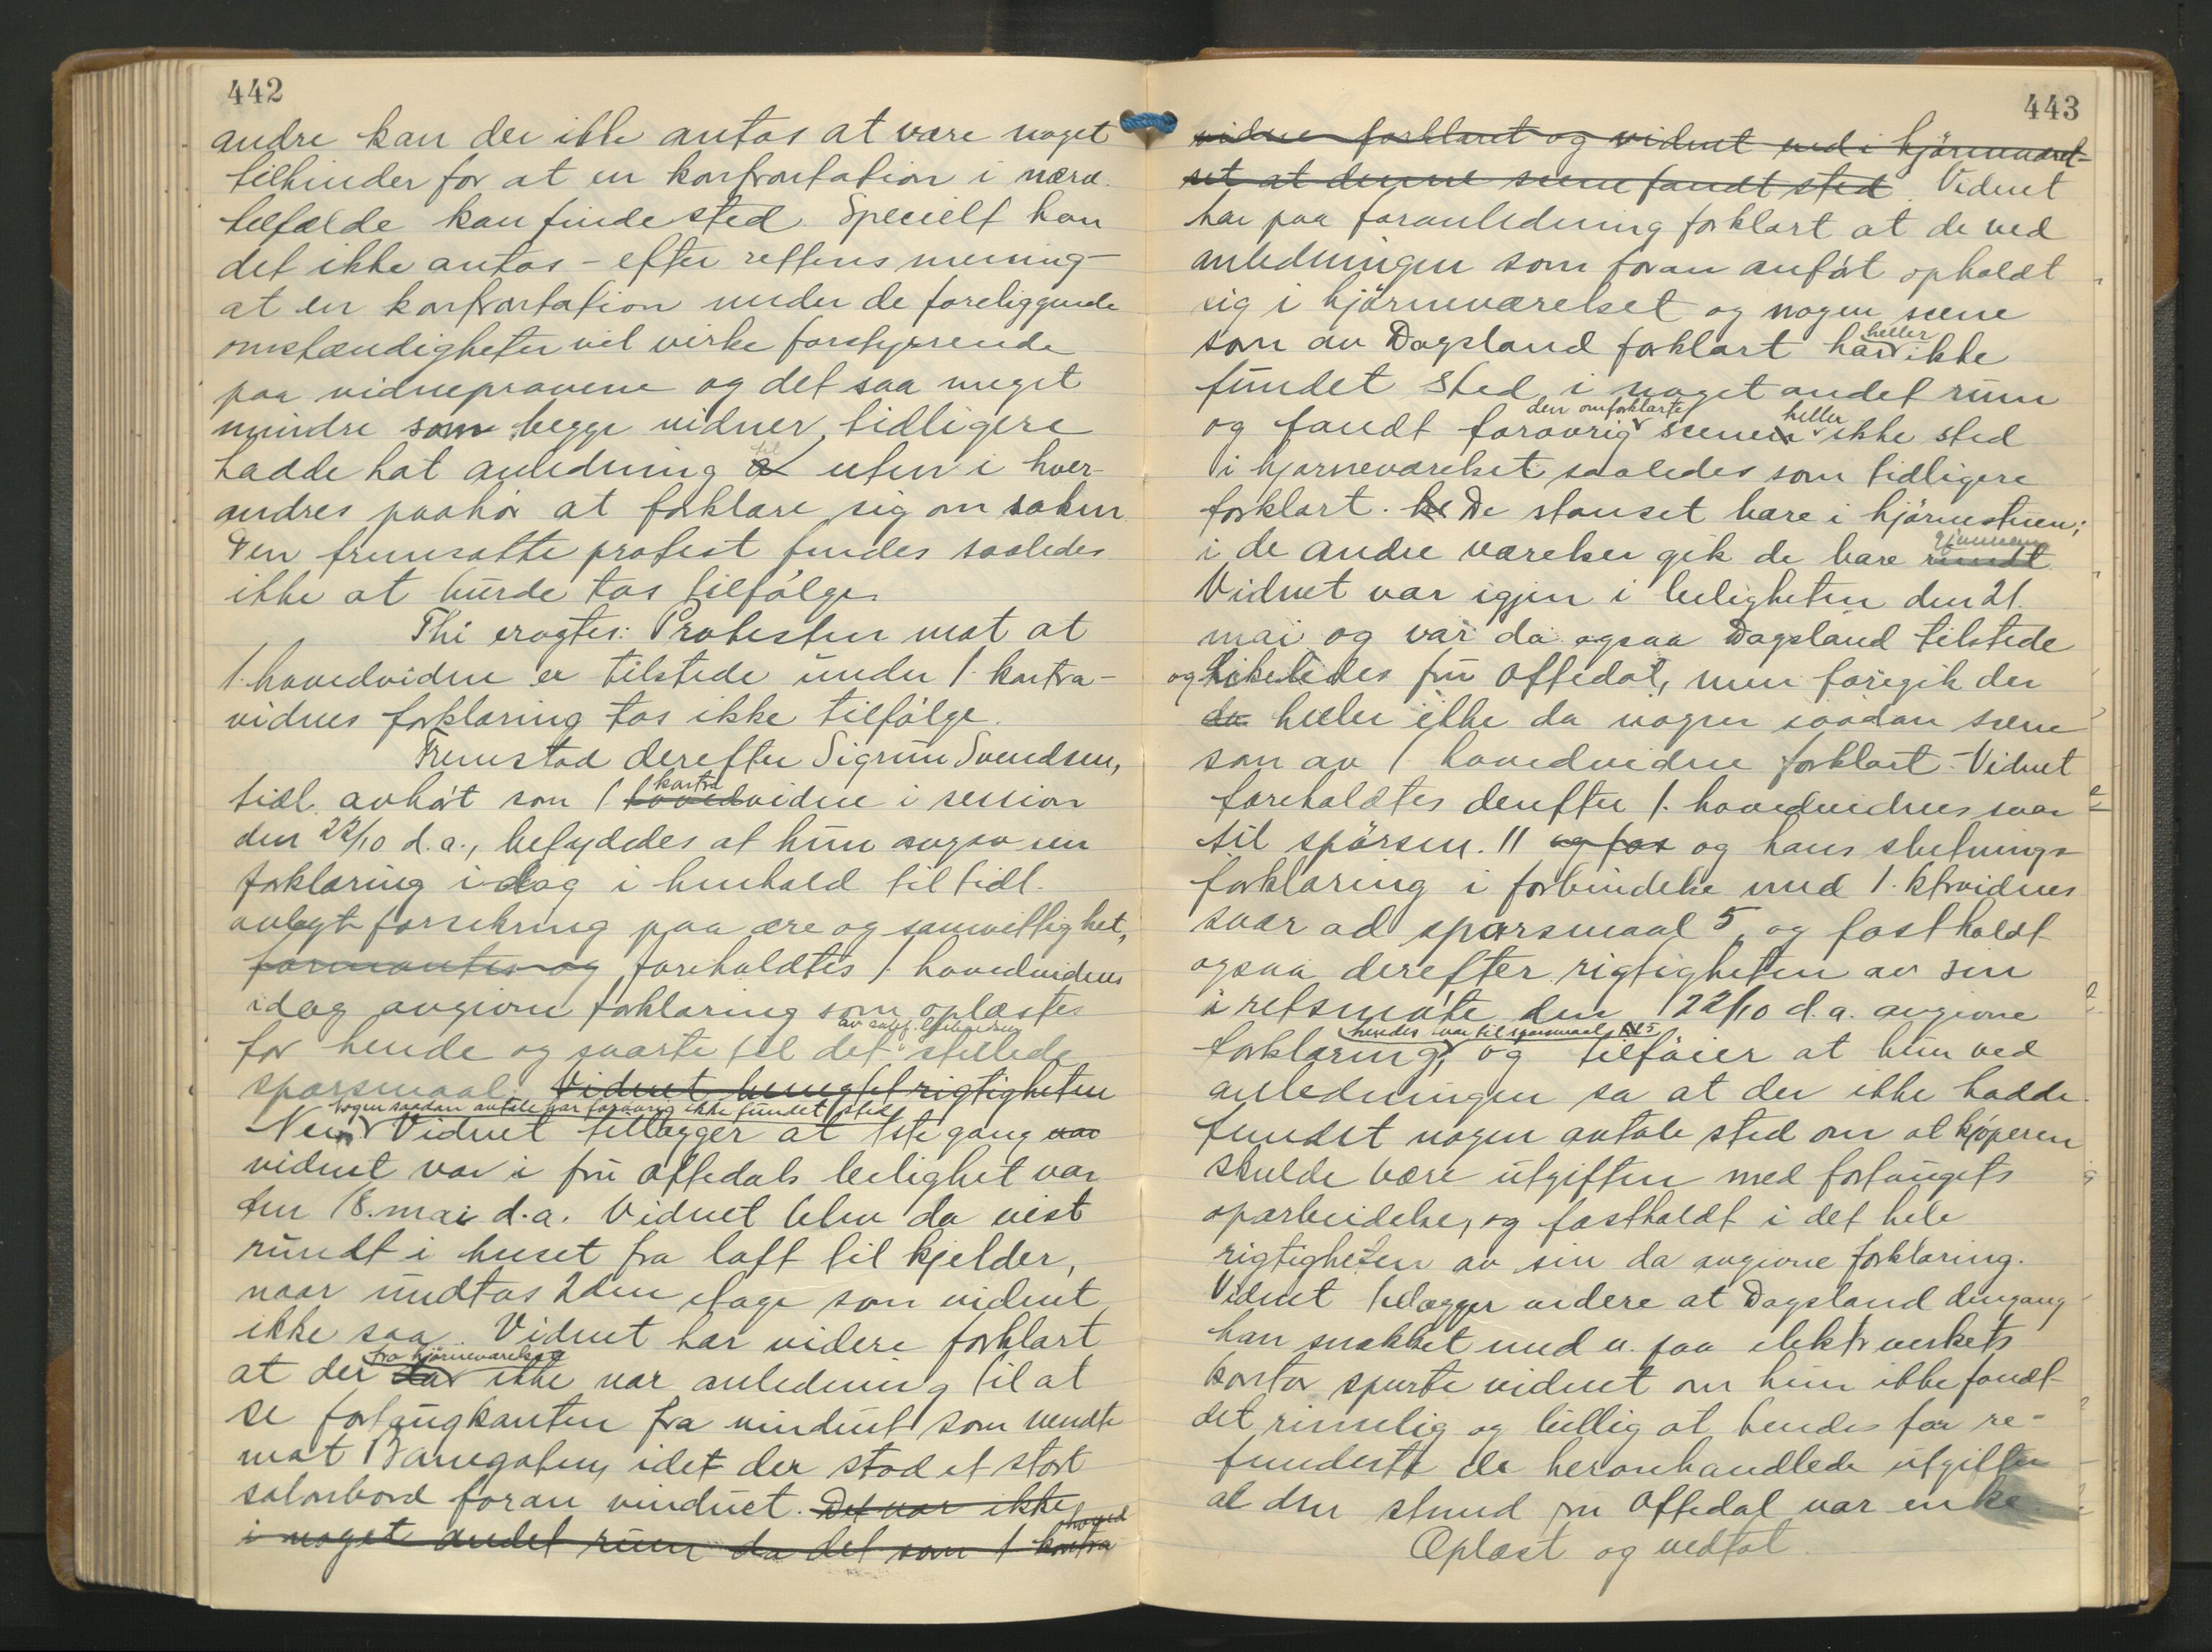 442
andre kan der ikke antas at være noget
tilhinder for at en konfrontation i nærv.
tilfælde kan finde sted. Specielt kan
det ikke antas - efter rettens mening -
at en konfrontation under de foreliggende
omstændigheter vil virke forstyrrende
paa vidneprovene og det saa meget
mindre som begge vidner tidligere
hadde hat anledning til uten i hver-
andres paahør at forklare sig om saken.
Den fremsatte protest findes saaledes
ikke at burde tas tilfølge.
Thi eragtes: Protesten mot at
1. hovedvidne er tilstede under 1. kontra-
vidnes forklaring tas ikke tilfølge.
Fremstod derefter Sigrun Svendsen,
kontra
tidl. avhørt som 1 hovedvidne i session
den 22/10 d.a., betydedes at hun avgav sin
forklaring idag i henhold til tidl.
avlagt forsikring paa ære og samvittighet,
formantes og foreholdtes 1. hovedvidnes
idag avgivne forklaring som oplæstes
for hende og svarte til det stillede
spørsmaal: Vidnet benegtet rigtigheten
nogen saadan avtale har forøvrig ikke fundet sted
Nei, Vidnet tillægger at 1ste gang var
vidnet var i fru Offedals leilighet var
den 18. mai d.a. Vidnet blev da vist
rundt i huset fra loft til kjelder,
naar undtas 2den etage som vidnet
ikke saa. Vidnet har videre forklart
fra hjørneværelset
at der da ikke var anledning til at
se fortaugkanten fra vinduet som vendte
mot Banegaten, idet der stod et stort
salonbord foran vinduet. Det var ikke
hoved
i noget andet rum da det som 1 kontra
443
vidne forklaret og vidnet ved i hjørneværel-
set at denne scene fandt sted. Vidnet
har paa foranledning forklart at de ved
anledningen som foran anført opholdt
sig i hjørneværelset og nogen scene
heller
som av Dagsland forklart har ikke
fundet sted i noget andet rum
den omforklarte heller
og fandt forøvrig scenen ikke sted
i hjørneværelset saaledes som tidligere
forklart. De stanset bare i hjørnestuen;
gjennem
i de andre værelser gik de bare rundt.
Vidnet var igjen i leiligheten den 21.
mai og var da ogsaa Dagsland tilstede
og likeledes fru Offedal, men foregik der
da heller ikke da nogen saadan scene
som av 1 hovedvidne forklart. Vidnet
foreholdtes derefter 1. hovedvidnes svar
til spørsm. 11 og for og hans slutnings-
forklaring i forbindelse med 1. ktrvidnes
svar ad spørsmaal 5, og fastholdt
ogsaa derefter rigtigheten av sin
i retsmøte den 22/10 d.a. avgivne
hendes svar til spørsmaal 5
forklaring, og tilføier at hun ved
anledningen sa at der ikke hadde
fundet nogen avtale sted om at kjøperen
skulde bære utgiften med fortaugets
oparbeidelse, og fastholdt i det hele
rigtigheten av sin da avgivne forklaring.
Vidnet tillægger videre at Dagsland dengang
han snakket med v. paa elektr verkets
kontor spurte vidnet om hun ikke fandt
det rimelig og billig at hendes far re-
funderte de heromhandlede utgifter
al den stund fru Offedal var enke.
Oplæst og vedtat.